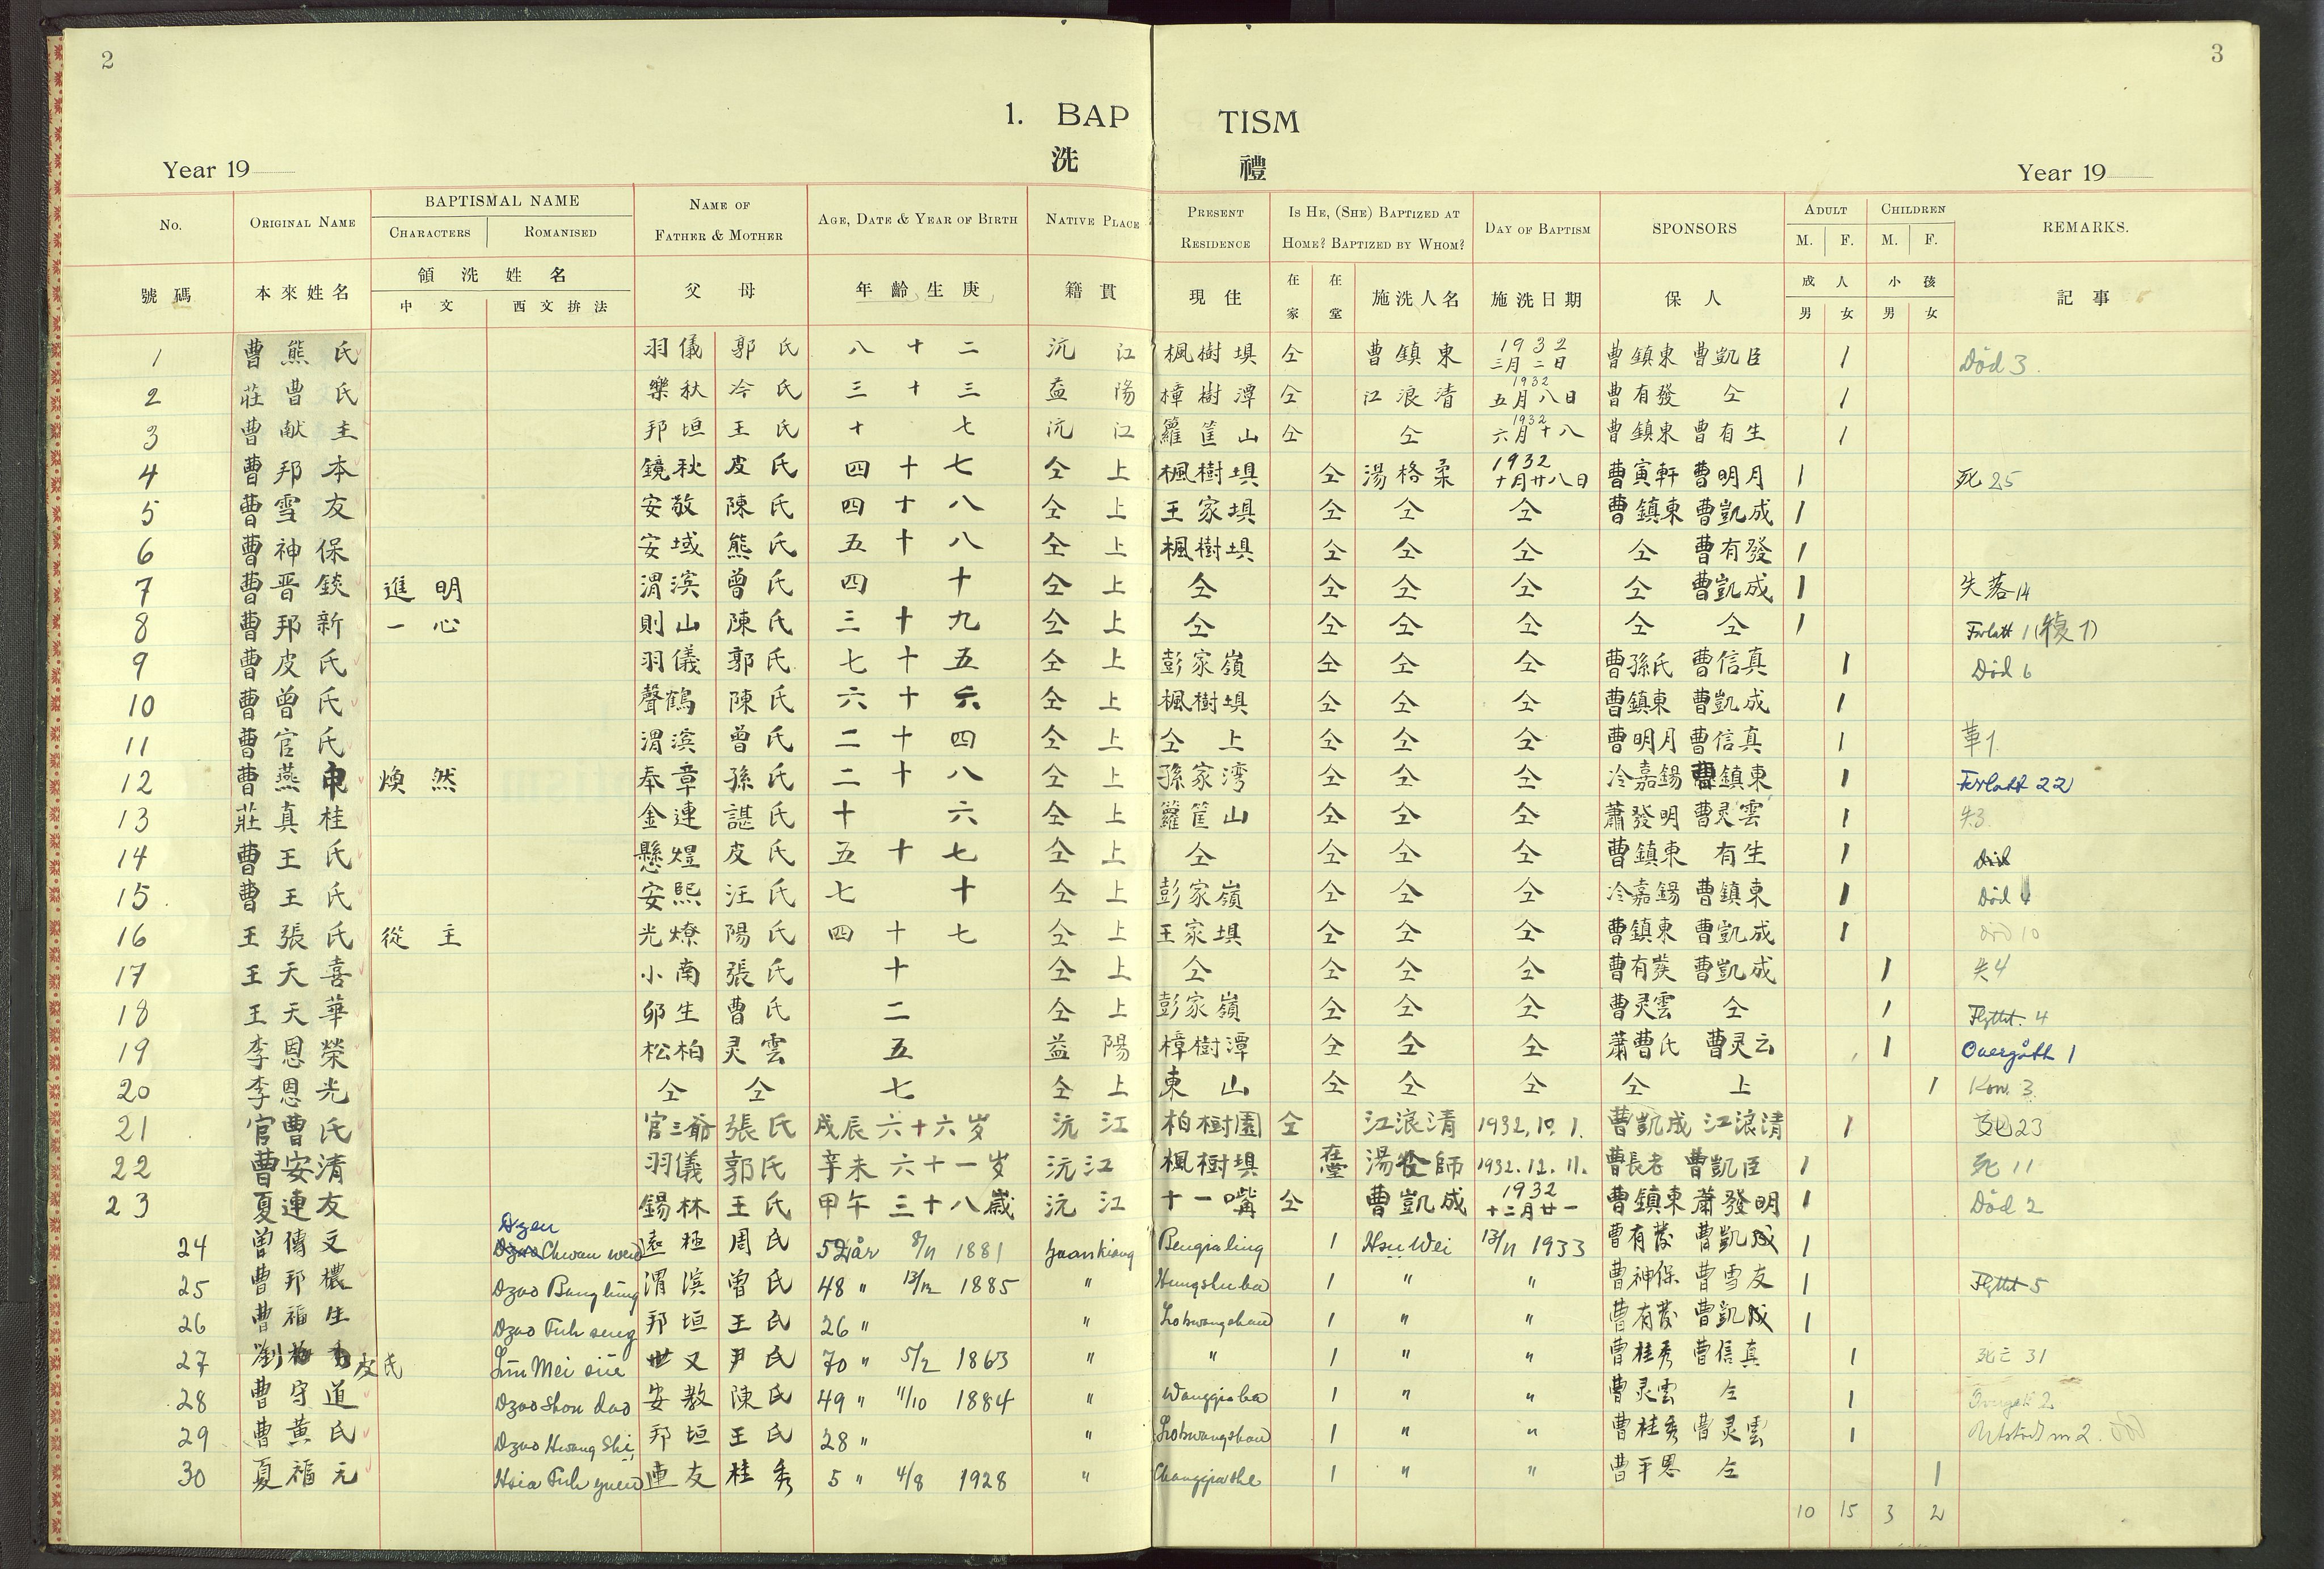 2
3
1. BAP TISM
洗 禮
Year 19
Year 19
No. ORIGINAL NAME BAPTISMAL NAME CHARACTERS ROMANISED NAME OF FATHER & MOTHER AGE, DATE & YEAR OF BIRTH NATIVE PLACE PRESENT RESIDENCE IS HE, (SHE) BAPTIZED AT HOME? BAPTIZED BY WHOM? DAY OF BAPTISM SPONSORS ADULT M. F. CHILDREN M. F. REMARKS.
號碼 本來姓名 領洗姓名 中文 西文拚法 父母 年齡生庚 籍貫 現住 在家 在堂 施洗人名 施洗日期 保人 成人 男 女 小孩 男 女 記事
1 曹熊氏 羽儀 郭氏 八十二 沅江 楓樹垻 仝 曹鎮東 1932 三月二日 曹鎮東 曹凱臣 1 Död 3.
2 莊曹氏 樂秋 冷氏 三十三 益陽 樟樹潭 仝 江浪清 1932 五月八日 曹有發 仝 1
3 曹献主 邦垣 王氏 十七 沅江 籮筐山 仝 仝 1932 六月十八 曹鎮東 曹有生 1
4 曹邦本 鏡秋 皮氏 四十七 仝上 楓樹垻 仝 湯格柔 1932 十月廿八日 曹寅軒 曹明月 1 死 25
5 曹雪友 安敬 陳氏 四十八 仝上 王家垻 仝 仝 仝 曹鎮東 曹凱成 1
6 曹神保 安域 熊氏 五十八 仝上 楓樹垻 仝 仝 仝 仝 曹有發 1
7 曹晋錟 進明 渭滨 曾氏 四十 仝上 仝 仝 仝 仝 仝 曹凱成 1 失落 14
8 曹邦新 一心 則山 陳氏 三十九 仝上 仝 仝 仝 仝 仝 仝 1 Förlatt 1 (復1)
9 曹皮氏 羽儀 郭氏 七十五 仝上 彭家嶺 仝 仝 仝 曹孫氏 曹信真 1 Död 6
10 曹曾氏 聲鶴 陳氏 六十六 仝上 楓樹垻 仝 仝 仝 曹鎮東 曹凱成 1
11 曹官氏 渭滨 曾氏 二十四 仝上 仝上 仝 仝 仝 曹明月 曹信真 1 革1.
12 曹燕 煥然 奉章 孫氏 二十八 仝上 孫家湾 仝 仝 仝 冷嘉錫 曹鎮東 1 Förlatt 22
13 莊真桂 金連 諶氏 十六 仝上 籮筐山 仝 仝 仝 蕭發明 曹灵雲 1 失3
14 曹王氏 懸煜 皮氏 五十七 仝上 仝 仝 仝 仝 曹鎮東 有生 1 Död
15 曹王氏 安熙 汪氏 七十 仝上 彭家嶺 仝 仝 仝 冷嘉錫 曹鎮東 1 Död 4
16 王張氏 從主 光燎 陽氏 四十七 仝上 王家垻 仝 仝 仝 曹鎮東 曹凱成 1 Död 10
17 王天喜 小南 張氏 十 仝上 仝 仝 仝 仝 曹有發 曹凱成 1 失4
18 王天華 卯生 曹氏 二 仝上 彭家嶺 仝 仝 仝 曹灵雲 仝 1 Flyttat. 4
19 李恩榮 松柏 灵雲 五 益陽 樟樹潭 仝 仝 仝 蕭曹氏 曹灵云 1 Övergått 1
20 李恩光 仝 仝 七 仝上 東山 仝 仝 仝 仝上 1 Kom. 3
21 官曹氏 官三爺 張氏 戊辰 六十六岁 沅江 柏樹園 仝 江浪清 1932.10.1. 曹凱成 江浪清 1 死 23
22 曹安清 羽儀 郭氏 辛未 六十一岁 沅江 楓樹垻 在堂 湯牧師 1932.12.11. 曹長老 曹凱臣 1 死 11
23 夏連友 錫林 王氏 甲午 三十八歲 沅江 十一嘴 仝 曹凱成 1932 十二月廿一 曹鎮東 蕭發明 1 Död 2
24 曾傳文 Dzen Chwan wen 遠極 周氏 52 år 8/11 1881 Yuankiang Pengjialing 1 Hsü Wei 13/11 1933 曹有發 曹凱成 1
25 曹邦穠 Dzao Bang lung 渭滨 曾氏 48 " 13/12 1885 " Hungshuba 1 " " 曹神保 曹雪友 1 Flyttat 5
26 曹福生 Dzao Fuh seng 邦垣 王氏 26 " " Lokwangshan 1 " " 曹有發 曹凱成 1
27 劉梅 皮氏 Liu Mei siu 世又 尹氏 70 " 5/2 1863 " " 1 " " 曹桂秀 曹信真 1 死亡 31
28 曹守道 Dzao Shou dao 安敎 陳氏 49 " 11/10 1884 " Wangjiaba 1 " " 曹灵雲 仝 1 Övergått 2
29 曹黄氏 Dzao Hwang Shi 邦垣 王氏 28 " " Lokwangshan 1 " " 曹桂秀 曹灵雲 1
30 夏福元 Hsia Fuh yuen 連友 桂秀 5 " 4/8 1928 " Changjiashe 1 " " 曹平恩 仝 1
10 15 3 2